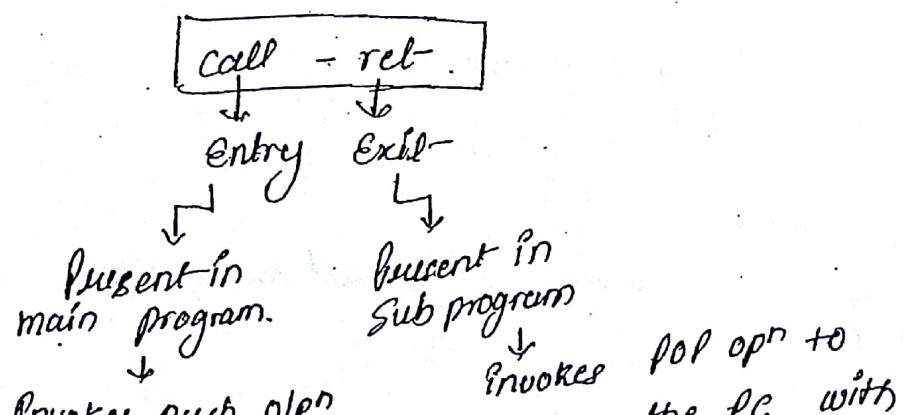 call - ret.
Entry Exit
Present in
main program.
Present in
Sub program
invokes POP opn to
Invokes push opn
the PC with